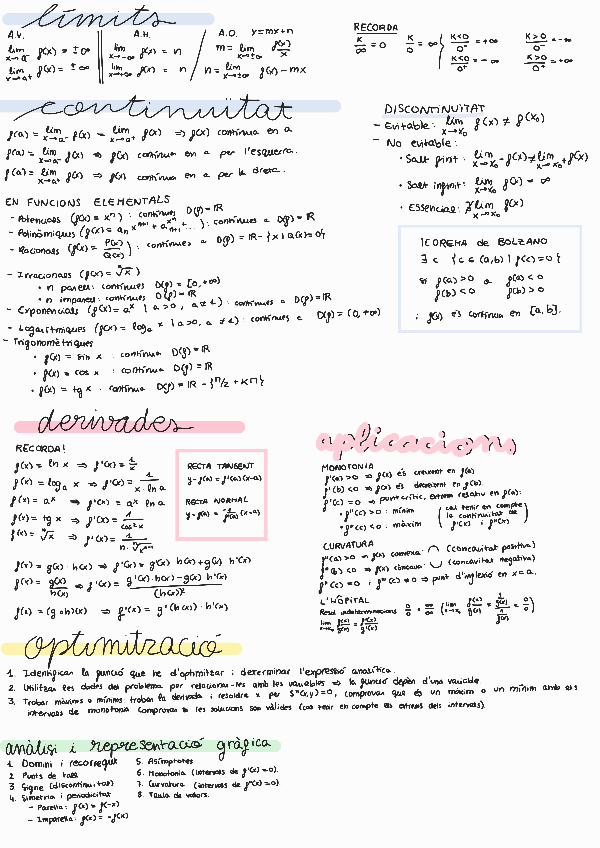 límits
A.V.
lim x→a⁻ f(x) = ±∞
lim x→a⁺ f(x) = ±∞
A.H.
lim x→-∞ f(x) = n
lim x→+∞ f(x) = n
A.O. y=mx+n
m = lim x→±∞ f(x)/x
n = lim x→±∞ f(x) - mx
RECORDA
K/∞ = 0 K/0 = ∞ { K<0/0⁻ = +∞ K>0/0⁻ = -∞
K<0/0⁺ = -∞ K>0/0⁺ = +∞
continuïtat
f(a) = lim x→a⁻ f(x) = lim x→a⁺ f(x) ⇒ f(x) contínua en a
f(a) = lim x→a⁻ f(x) ⇒ f(x) contínua en a per l'esquerra.
f(a) = lim x→a⁺ f(x) ⇒ f(x) contínua en a per la dreta.
DISCONTINUÏTAT
- Evitable: lim x→x₀ f(x) ≠ f(x₀)
- No evitable:
• Salt finit: lim x→x₀⁻ f(x) ≠ lim x→x₀⁺ f(x)
• Salt infinit: lim x→x₀ f(x) = ∞
• Essencial: ∄ lim x→x₀ f(x)
EN FUNCIONS ELEMENTALS
- Potencials (f(x) = xⁿ): contínues D(f) = ℝ
- Polinòmiques : contínues a D(f) = ℝ
- Racionals (f(x) = P(x)/Q(x)) : contínues a D(f) = ℝ - {x | Q(x)=0}
- Irracionals (f(x) = ⁿ√x)
• n parell: contínues D(f) = [0,+∞)
• n imparell: contínues D(f) = ℝ
- Exponencials (f(x) = aˣ | a>0, a≠1) : contínues a D(f) = ℝ
- Logarítmiques (f(x) = logₐ x | a>0, a≠1) : contínues a D(f) = (0,+∞)
- Trigonomètriques
• f(x) = sin x : contínua D(f) = ℝ
• f(x) = cos x : contínua D(f) = ℝ
• f(x) = tg x : contínua D(f) = ℝ - {π/2 + Kπ}
TEOREMA de BOLZANO
∃ c {c ∈ (a,b) | f(c) = 0}
si f(a) > 0 o f(a) < 0
f(b) < 0 f(b) > 0
i f(x) és contínua en [a,b].
derivades
RECORDA!
f(x) = ln x ⇒ f'(x) = 1/x
f(x) = logₐ x ⇒ f'(x) = 1/(x · ln a)
f(x) = aˣ ⇒ f'(x) = aˣ ln a
f(x) = tg x ⇒ f'(x) = 1/cos²x
f(x) = ⁿ√x ⇒ f'(x) = 1/(n · ⁿ√xⁿ⁻¹)
f(x) = g(x) · h(x) ⇒ f'(x) = g'(x) · h(x) + g(x) · h'(x)
f(x) = g(x)/h(x) ⇒ f'(x) = (g'(x) · h(x) - g(x) · h'(x))/(h(x))²
f(x) = (g∘h)(x) ⇒ f'(x) = g'(h(x)) · h'(x)
RECTA TANGENT
y - f(a) = f'(a) (x-a)
RECTA NORMAL
y - f(a) = -1/f'(a) (x-a)
aplicacions
MONOTONIA
f'(a) > 0 ⇒ f(x) és creixent en f(a).
f'(b) < 0 ⇒ f(x) és decreixent en f(b).
f'(c) = 0 ⇒ punt crític, extrem relatiu en f(a):
• f''(c) > 0 : mínim
• f''(c) < 0 : màxim
(cal tenir en compte la continuïtat de f'(x) i f''(x))
CURVATURA
f''(a) > 0 ⇒ f(x) convexa: ◠ (concavitat positiva)
f''(b) < 0 ⇒ f(x) còncava: ◡ (concavitat negativa)
f''(c) = 0 i ⇒ punt d'inflexió en x = a.
L'HÔPITAL
Resol indeterminacions 0/0 = ∞/∞
lim x→x₀ f(x)/g(x) = f'(x)/g'(x)
optimització
1. Identificar la funció que he d'optimitzar i determinar l'expressió analítica.
2. Utilitzar les dades del problema per relacionar-les amb les variables ⇒ la funció depèn d'una variable.
3. Trobar màxims o mínims: trobar la derivada i resoldre x per comprovar que és un màxim o un mínim amb els
intervals de monotonia. Comprovar si les solucions són vàlides (cal tenir en compte els extrems dels intervals).
anàlisi i representació gràfica
1. Domini i recorregut
2. Punts de tall
3. Signe (discontinuïtat)
4. Simetria i periodicitat
- Parella: f(x) = f(-x)
- Imparella: f(x) = -f(x)
5. Asímptotes
6. Monotonia (intervals de f'(x) = 0).
7. Curvatura (intervals de f''(x) = 0)
8. Taula de valors.